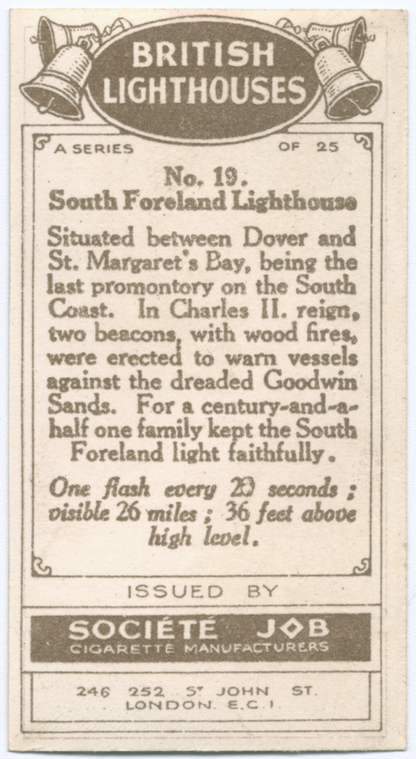 BRITISH
LIGHTHOUSES
A SERIES OF 25
No. 19.
South Foreland Lighthouse
Situated between Dover and
St. Margaret's Bay, being the
last promontory on the South
Coast. In Charles II. reign,
two beacons, with wood fires,
were erected to warn vessels
against the dreaded Goodwin
Sands. For a century-and-a-
half one family kept the South
Foreland light faithfully.
One flash every 20 seconds ;
visible 26 miles ; 36 feet above
high level.
ISSUED BY
SOCIÉTÉ JOB
CIGARETTE MANUFACTURERS
246 252 ST JOHN ST.
LONDON. E.C.1.